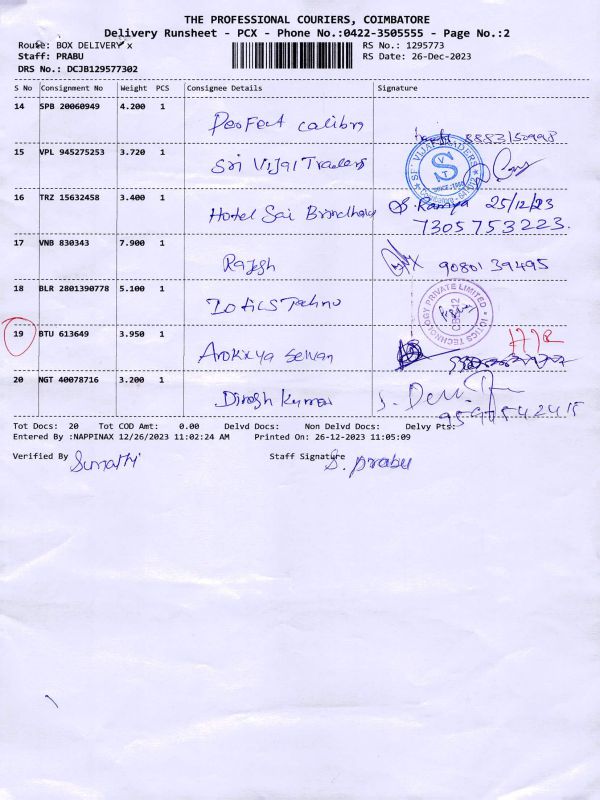 THE PROFESSIONAL COURIERS, COIMBATORE
Delivery Runsheet - PCX - Phone No.:0422-3505555 - Page No.:2
Route: BOX DELIVERY x RS No.: 1295773
Staff: PRABU RS Date: 26-Dec-2023
DRS No.: DCJB129577302
S No Consignment No Weight PCS Consignee Details Signature
14 SPB 20060949 4.200 1 Perfect calibra
15 VPL 945275253 3.720 1 Sri Vijai Traders
16 TRZ 15632458 3.400 1 Hotel Sai 25/12/23
7305753223.
17 VNB 830343 7.900 1 Rajesh 90801 39495
18 BLR 2801390778 5.100 1 Iotics Techno
IOTICS TECHNOLOGY PRIVATE LIMITED
19 BTU 613649 3.950 1 Arokiya selvan
20 NGT 40078716 3.200 1 Dinesh Kumar
9597542415
Tot Docs: 20 Tot COD Amt: 0.00 Delvd Docs: Non Delvd Docs: Delvy Pts:
Entered By :NAPPINAX 12/26/2023 11:02:24 AM Printed On: 26-12-2023 11:05:09
Verified By Staff Signature S. prabu